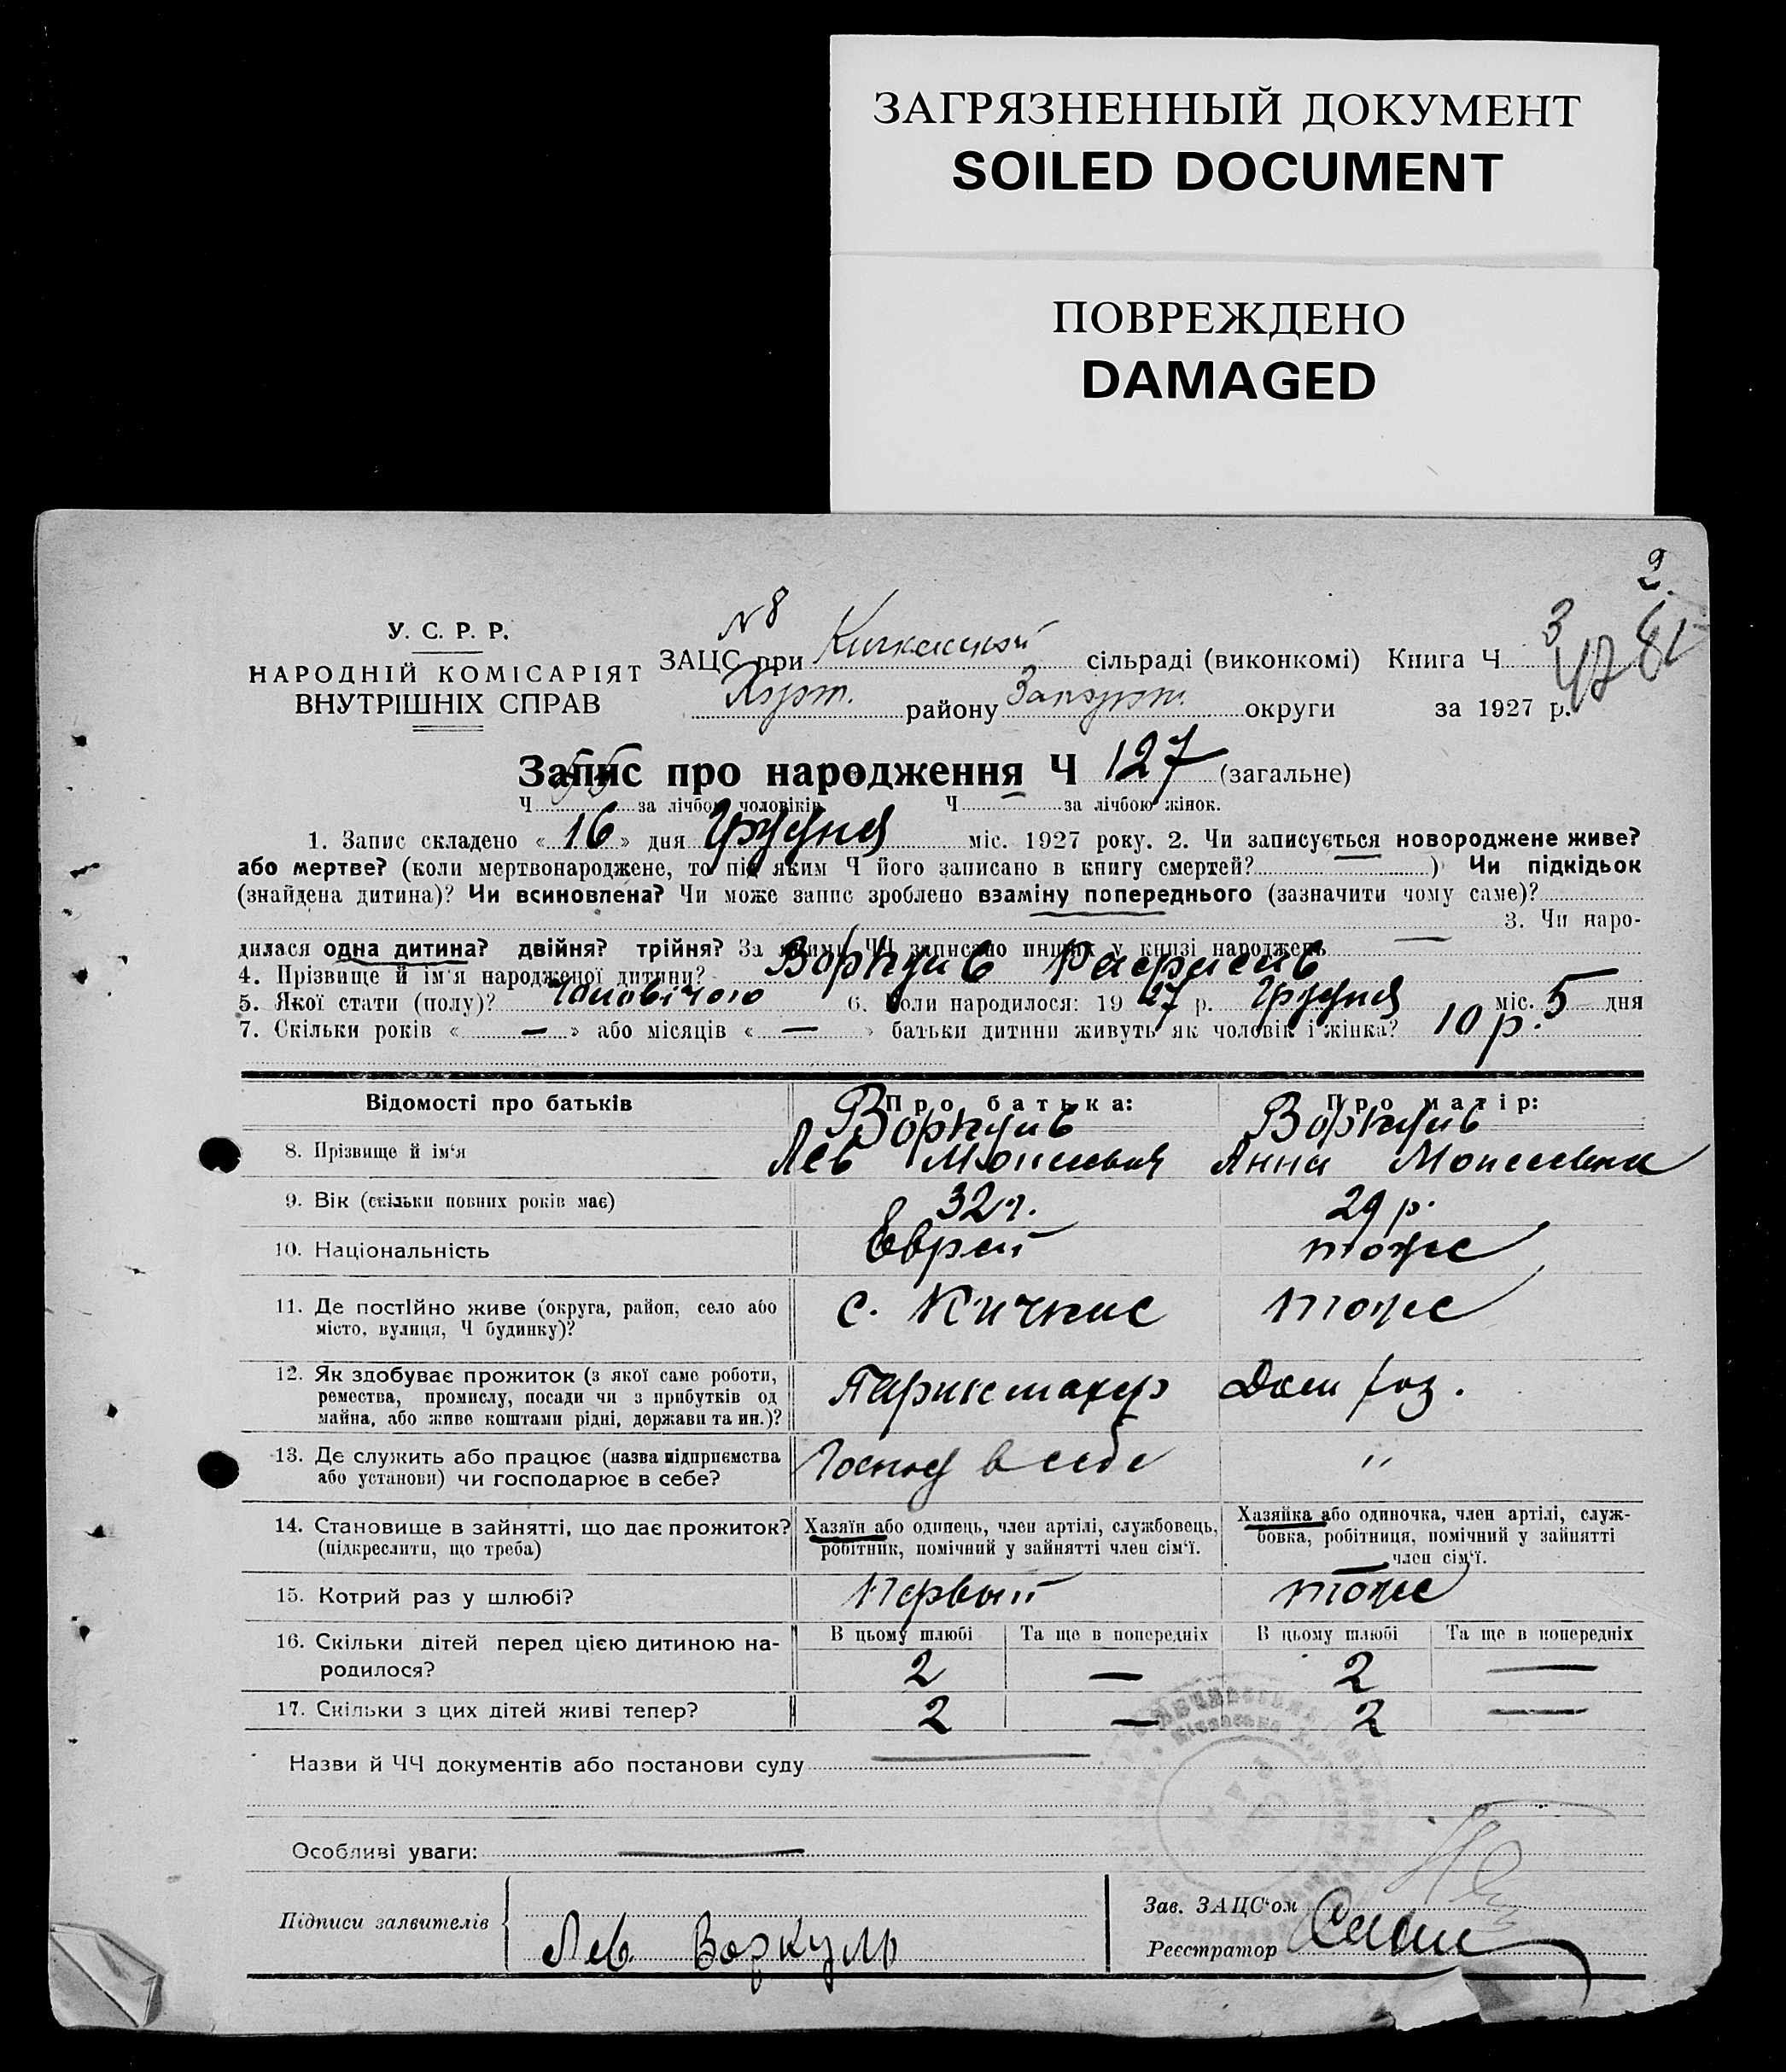 ЗАГРЯЗНЕННЫЙ ДОКУМЕНТ
SOILED DOCUMENT
ПОВРЕЖДЕНО
DAMAGED
2.
У. С. Р. Р.
НАРОДНІЙ КОМІСАРІЯТ
ВНУТРІШНІХ СПРАВ
N 8
ЗАЦС при сільраді (виконкомі) Книга Ч 3
Хорт. району Запоріж. округи за 1927 р.
Запис про народження Ч 127 (загальне)
Ч 55 за лічбою чоловіків Ч — за лічбою жінок.
1. Запис складено « 16 » дня Грудня міс. 1927 року. 2. Чи записується новороджене живе?
або мертве? (коли мертвонароджене, то під яким Ч його записано в книгу смертей? ) Чи підкідьок
(знайдена дитина)? Чи всиновлена? Чи може запис зроблено взаміну попереднього (зазначити чому саме)?
3. Чи наро-
дилася одна дитина? двійня? трійня? За якими ЧЧ записано инших у книзі народжень —
4. Прізвище й ім'я народженої дитини? Воркуль
5. Якої стати (полу)? чоловічого 6. Коли народилося: 19 27 р. Грудня міс. 5 дня
7. Скільки років « — » або місяців « — » батьки дитини живуть як чоловік і жінка? 10 р.
Відомості про батьків Про батька: Про матір:
8. Прізвище й ім'я Воркуль Лев Моисеевич Воркуль Анна Моисеевна
9. Вік (скільки повних років має) 32 г. 29 р.
10. Національність Еврей тоже
11. Де постійно живе (округа, район, село або с. Кичкас тоже
місто, вулиця, Ч будинку)?
12. Як здобуває прожиток (з якої саме роботи, Парикмахер Дом хоз.
ремества, промислу, посади чи з прибутків од
майна, або живе коштами рідні, держави та ин.)?
13. Де служить або працює (назва підприємства в себе "
або установи) чи господарює в себе?
14. Становище в зайнятті, що дає прожиток? Хазяїн або одинець, член артілі, службовець, Хазяйка або одиночка, член артілі, служ-
(підкреслити, що треба) робітник, помічний у зайнятті член сім'ї. бовка, робітниця, помічний у зайнятті
член сім'ї.
15. Котрий раз у шлюбі? Первый тоже
16. Скільки дітей перед цією дитиною на- В цьому шлюбі Та ще в попередніх В цьому шлюбі Та ще в попередніх
родилося? 2 — 2 —
17. Скільки з цих дітей живі тепер? 2 — 2 —
Назви й ЧЧ документів або постанови суду —
Особливі уваги: —
Підписи заявителів Лев Воркуль
Зав. ЗАЦС'ом
Реєстратор